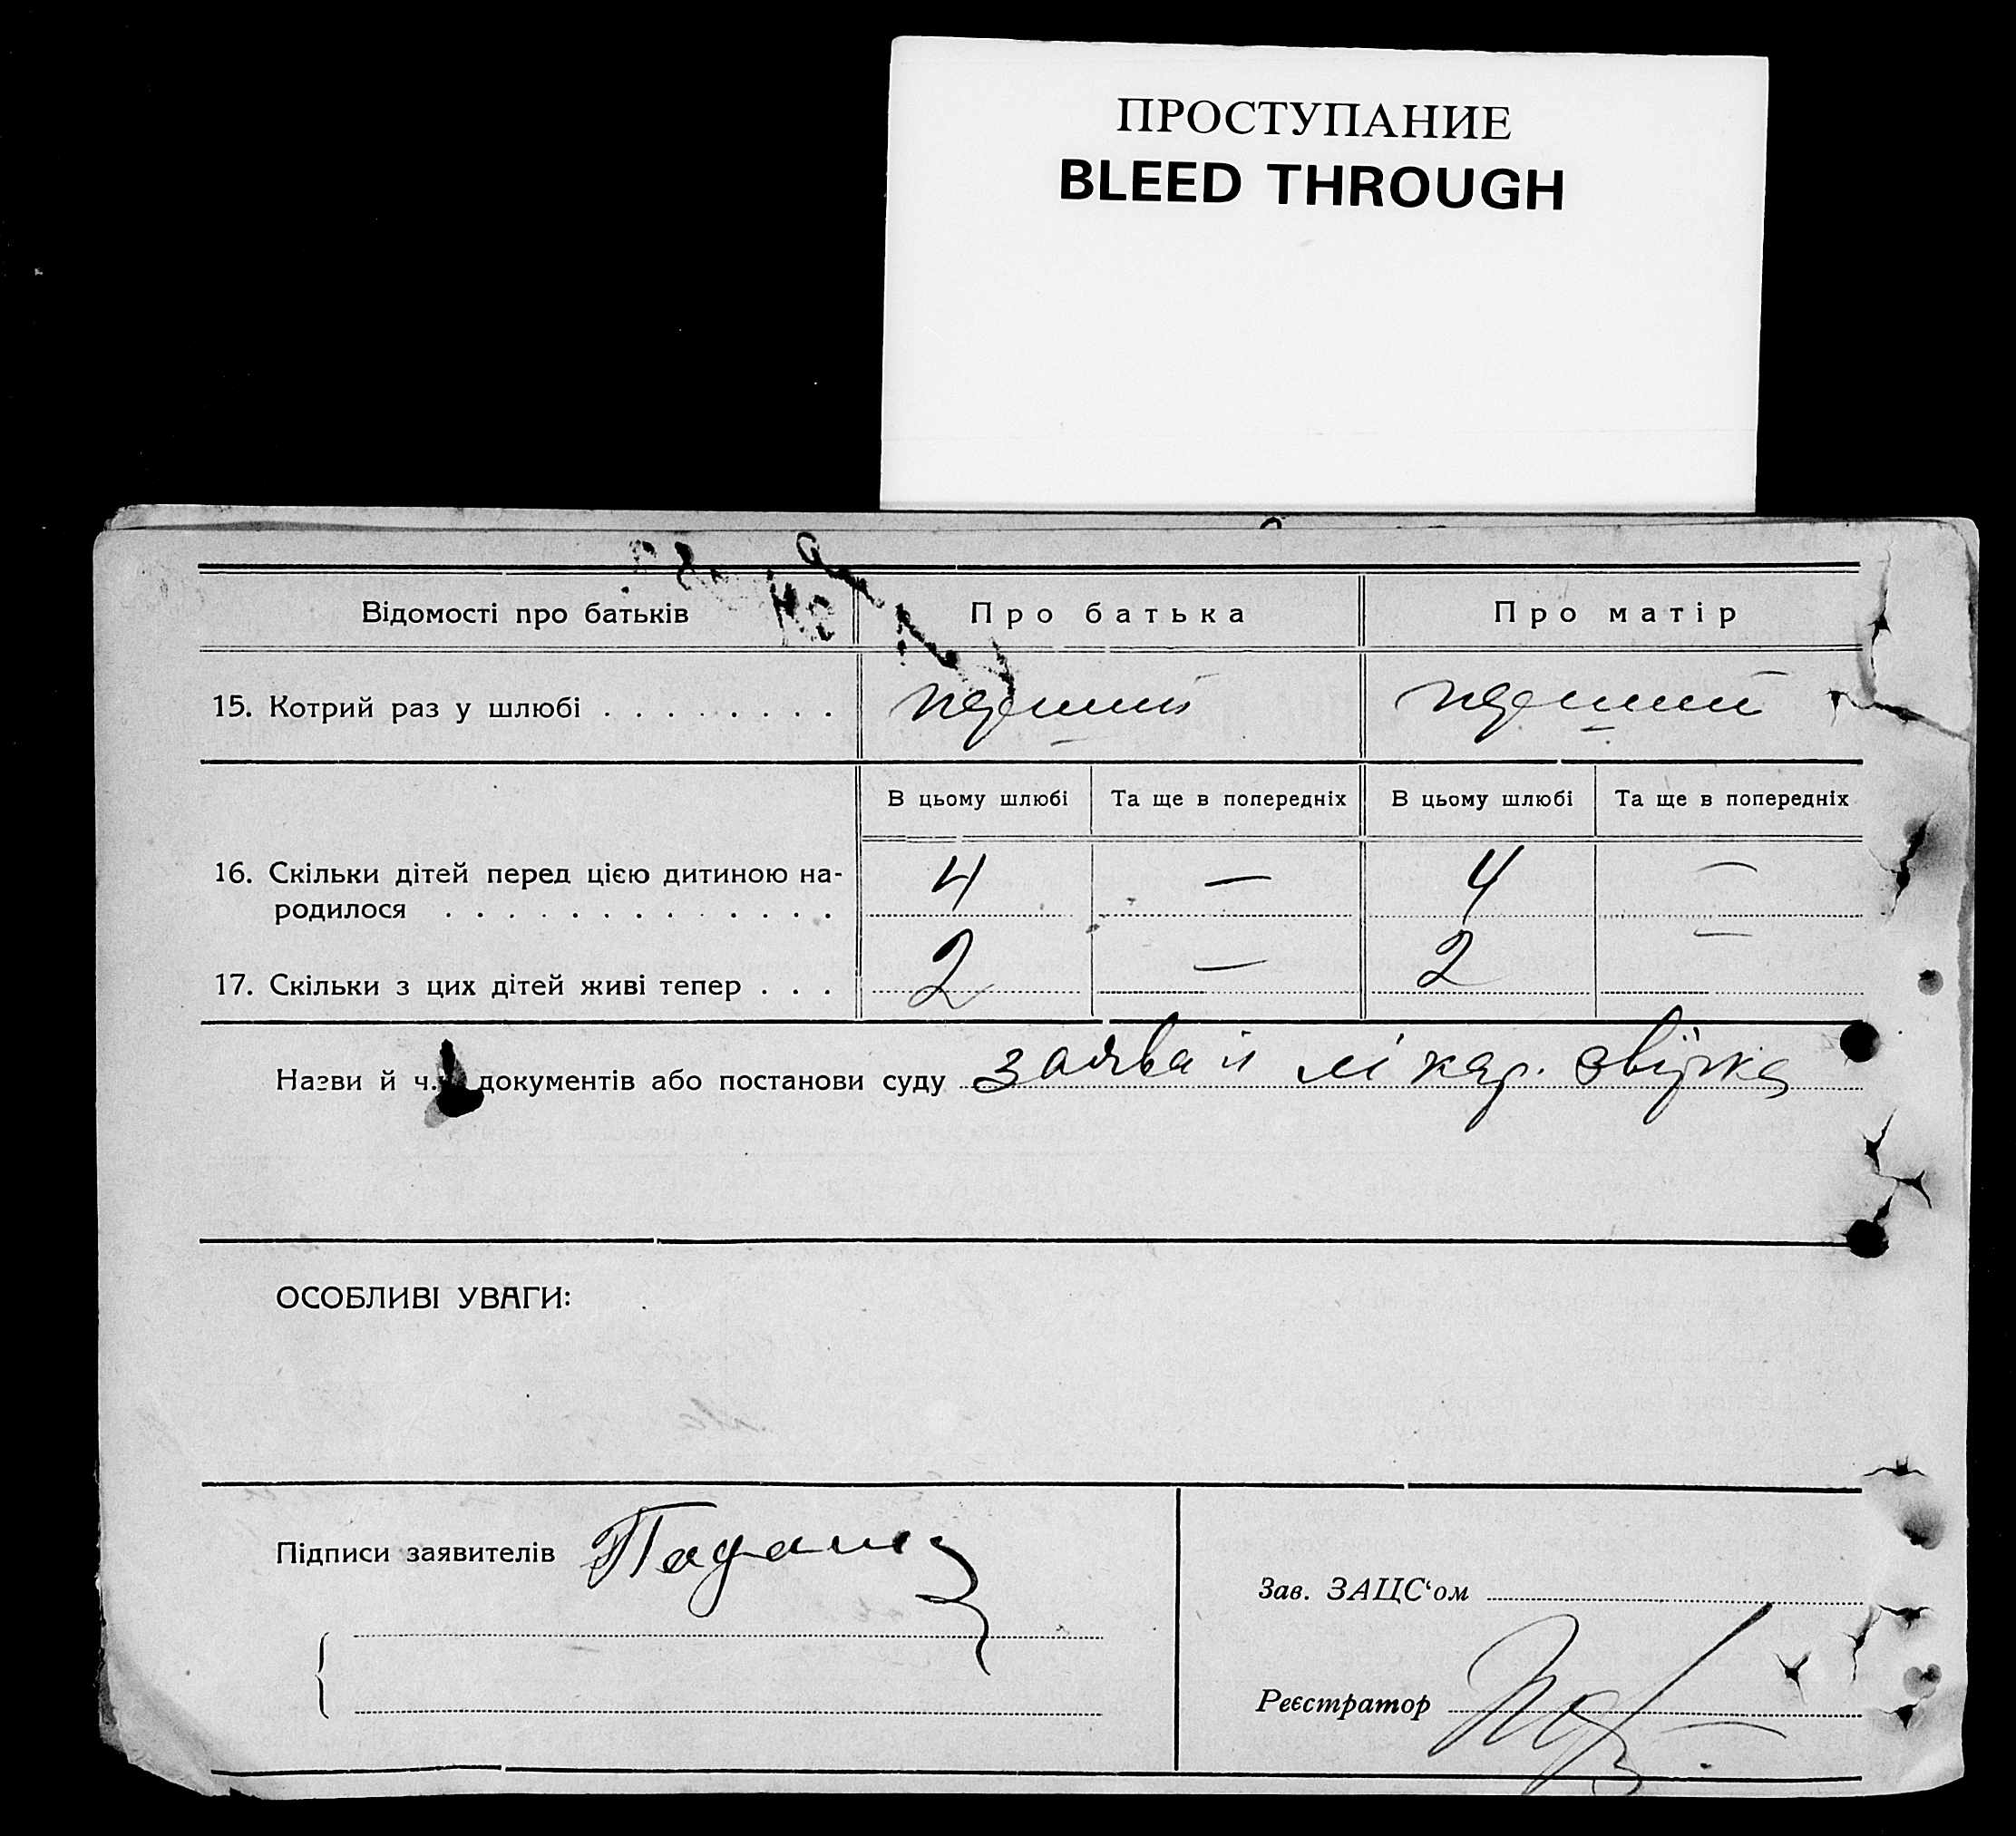 ПРОСТУПАНИЕ
BLEED THROUGH
Відомості про батьків Про батька Про матір
15. Котрий раз у шлюбі . . . . . . . . перший перший
В цьому шлюбі Та ще в попередніх В цьому шлюбі Та ще в попередніх
16. Скільки дітей перед цією дитиною на-
родилося . . . . . . . . . . . . . 4 — 4 —
17. Скільки з цих дітей живі тепер . . . 2 — 2 —
Назви й документів або постанови суду заява й лікар.
ОСОБЛИВІ УВАГИ:
Підписи заявителів
Зав. ЗАЦС‘ом
Реєстратор